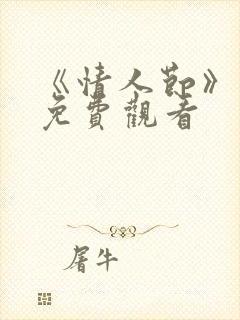 《情人節》
免費觀看
屠牛